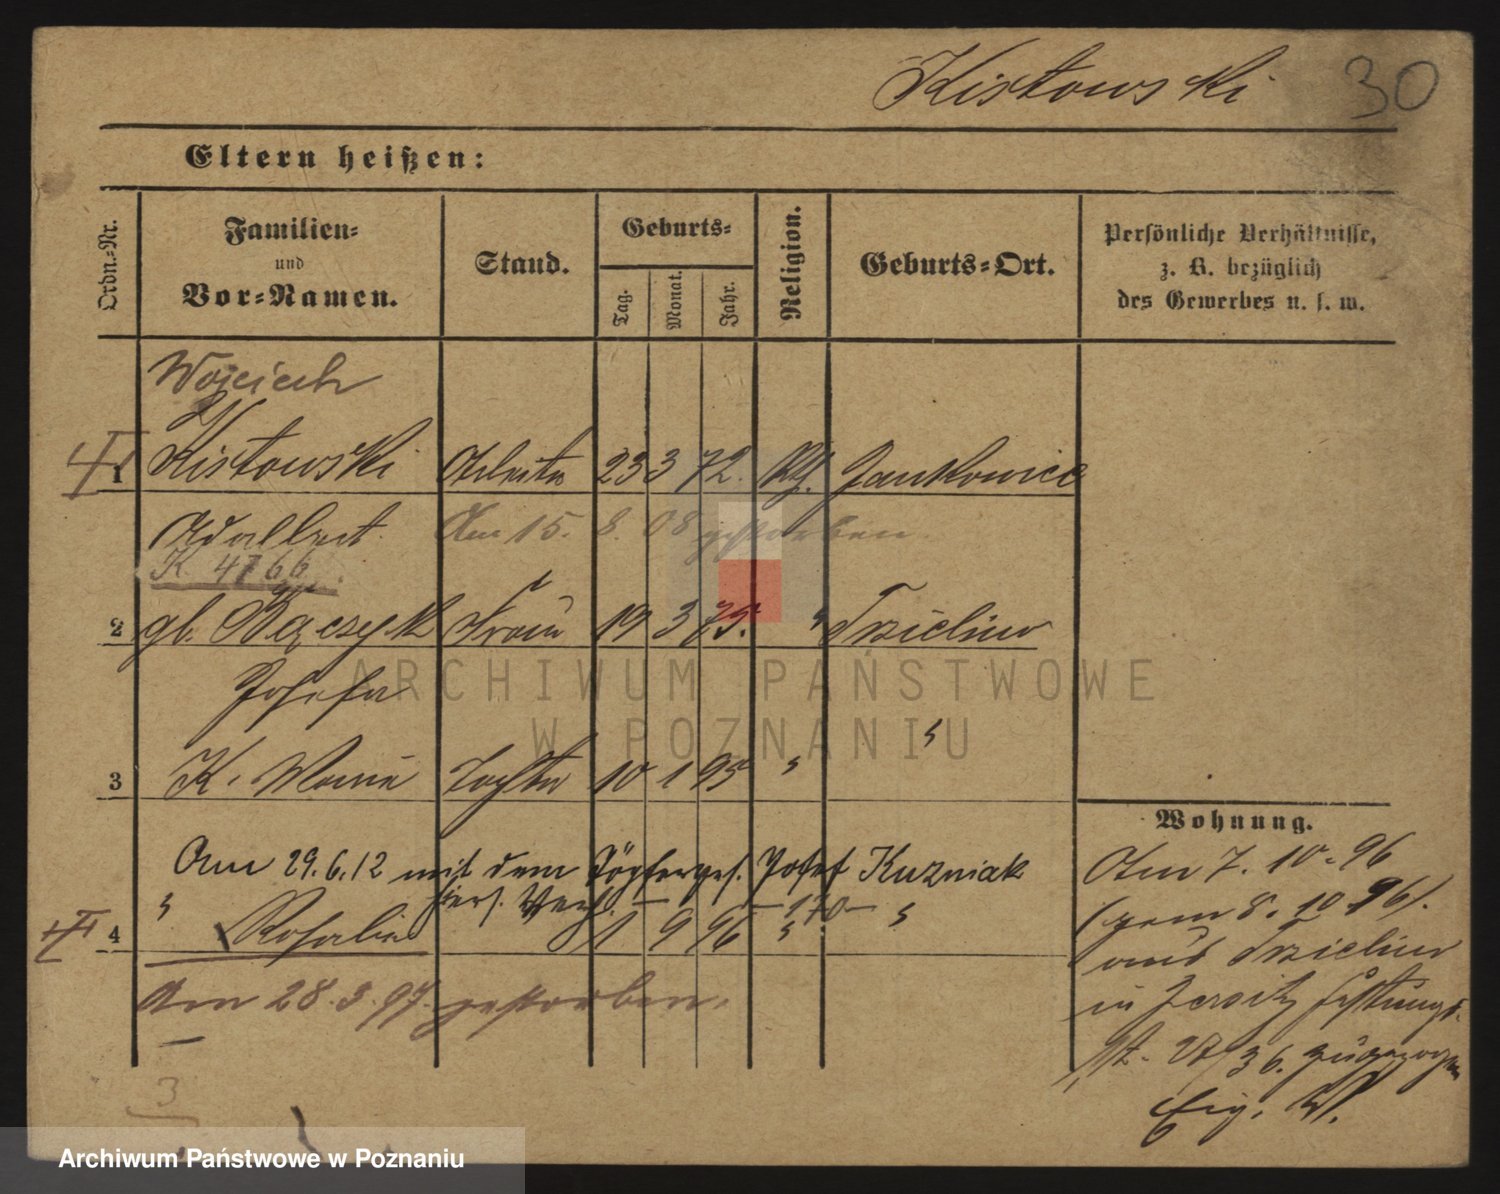 Kistowski 30
Eltern heißen:
Ordn.-Nr.
Familien-
und
Vor-Namen.
Stand.
Geburts-
Tag.
Monat.
Jahr.
Religion.
Geburts-Ort.
Persönliche Verhältnisse,
z. B. bezüglich
des Gewerbes u. s. w.
Wojciech
1 Kistowski Arbeiter 23 3 72. Kth. Jankowice
Adalbert. Am 15. 8. 08 gestorben.
K 4766
2 gb. Bączyk Frau 19 3 75. " Trzielino
Josefa
3 K. Maria Tochter 10 1 95 " "
Am 29.6.12 mit dem Töpferges. Josef Kuzniak
hiers. Verh. — 170 —
4 " Rosalie 1 9 96 " "
Am 28.3.97. gestorben.
3
Wohnung.
Am 7. 10. 96
(gem 8. 10 96).
aus Trzielino
in Jersitz Festungs-
36. zugezogen
Eig. W.
ARCHIWUM PAŃSTWOWE
W POZNANIU
Archiwum Państwowe w Poznaniu